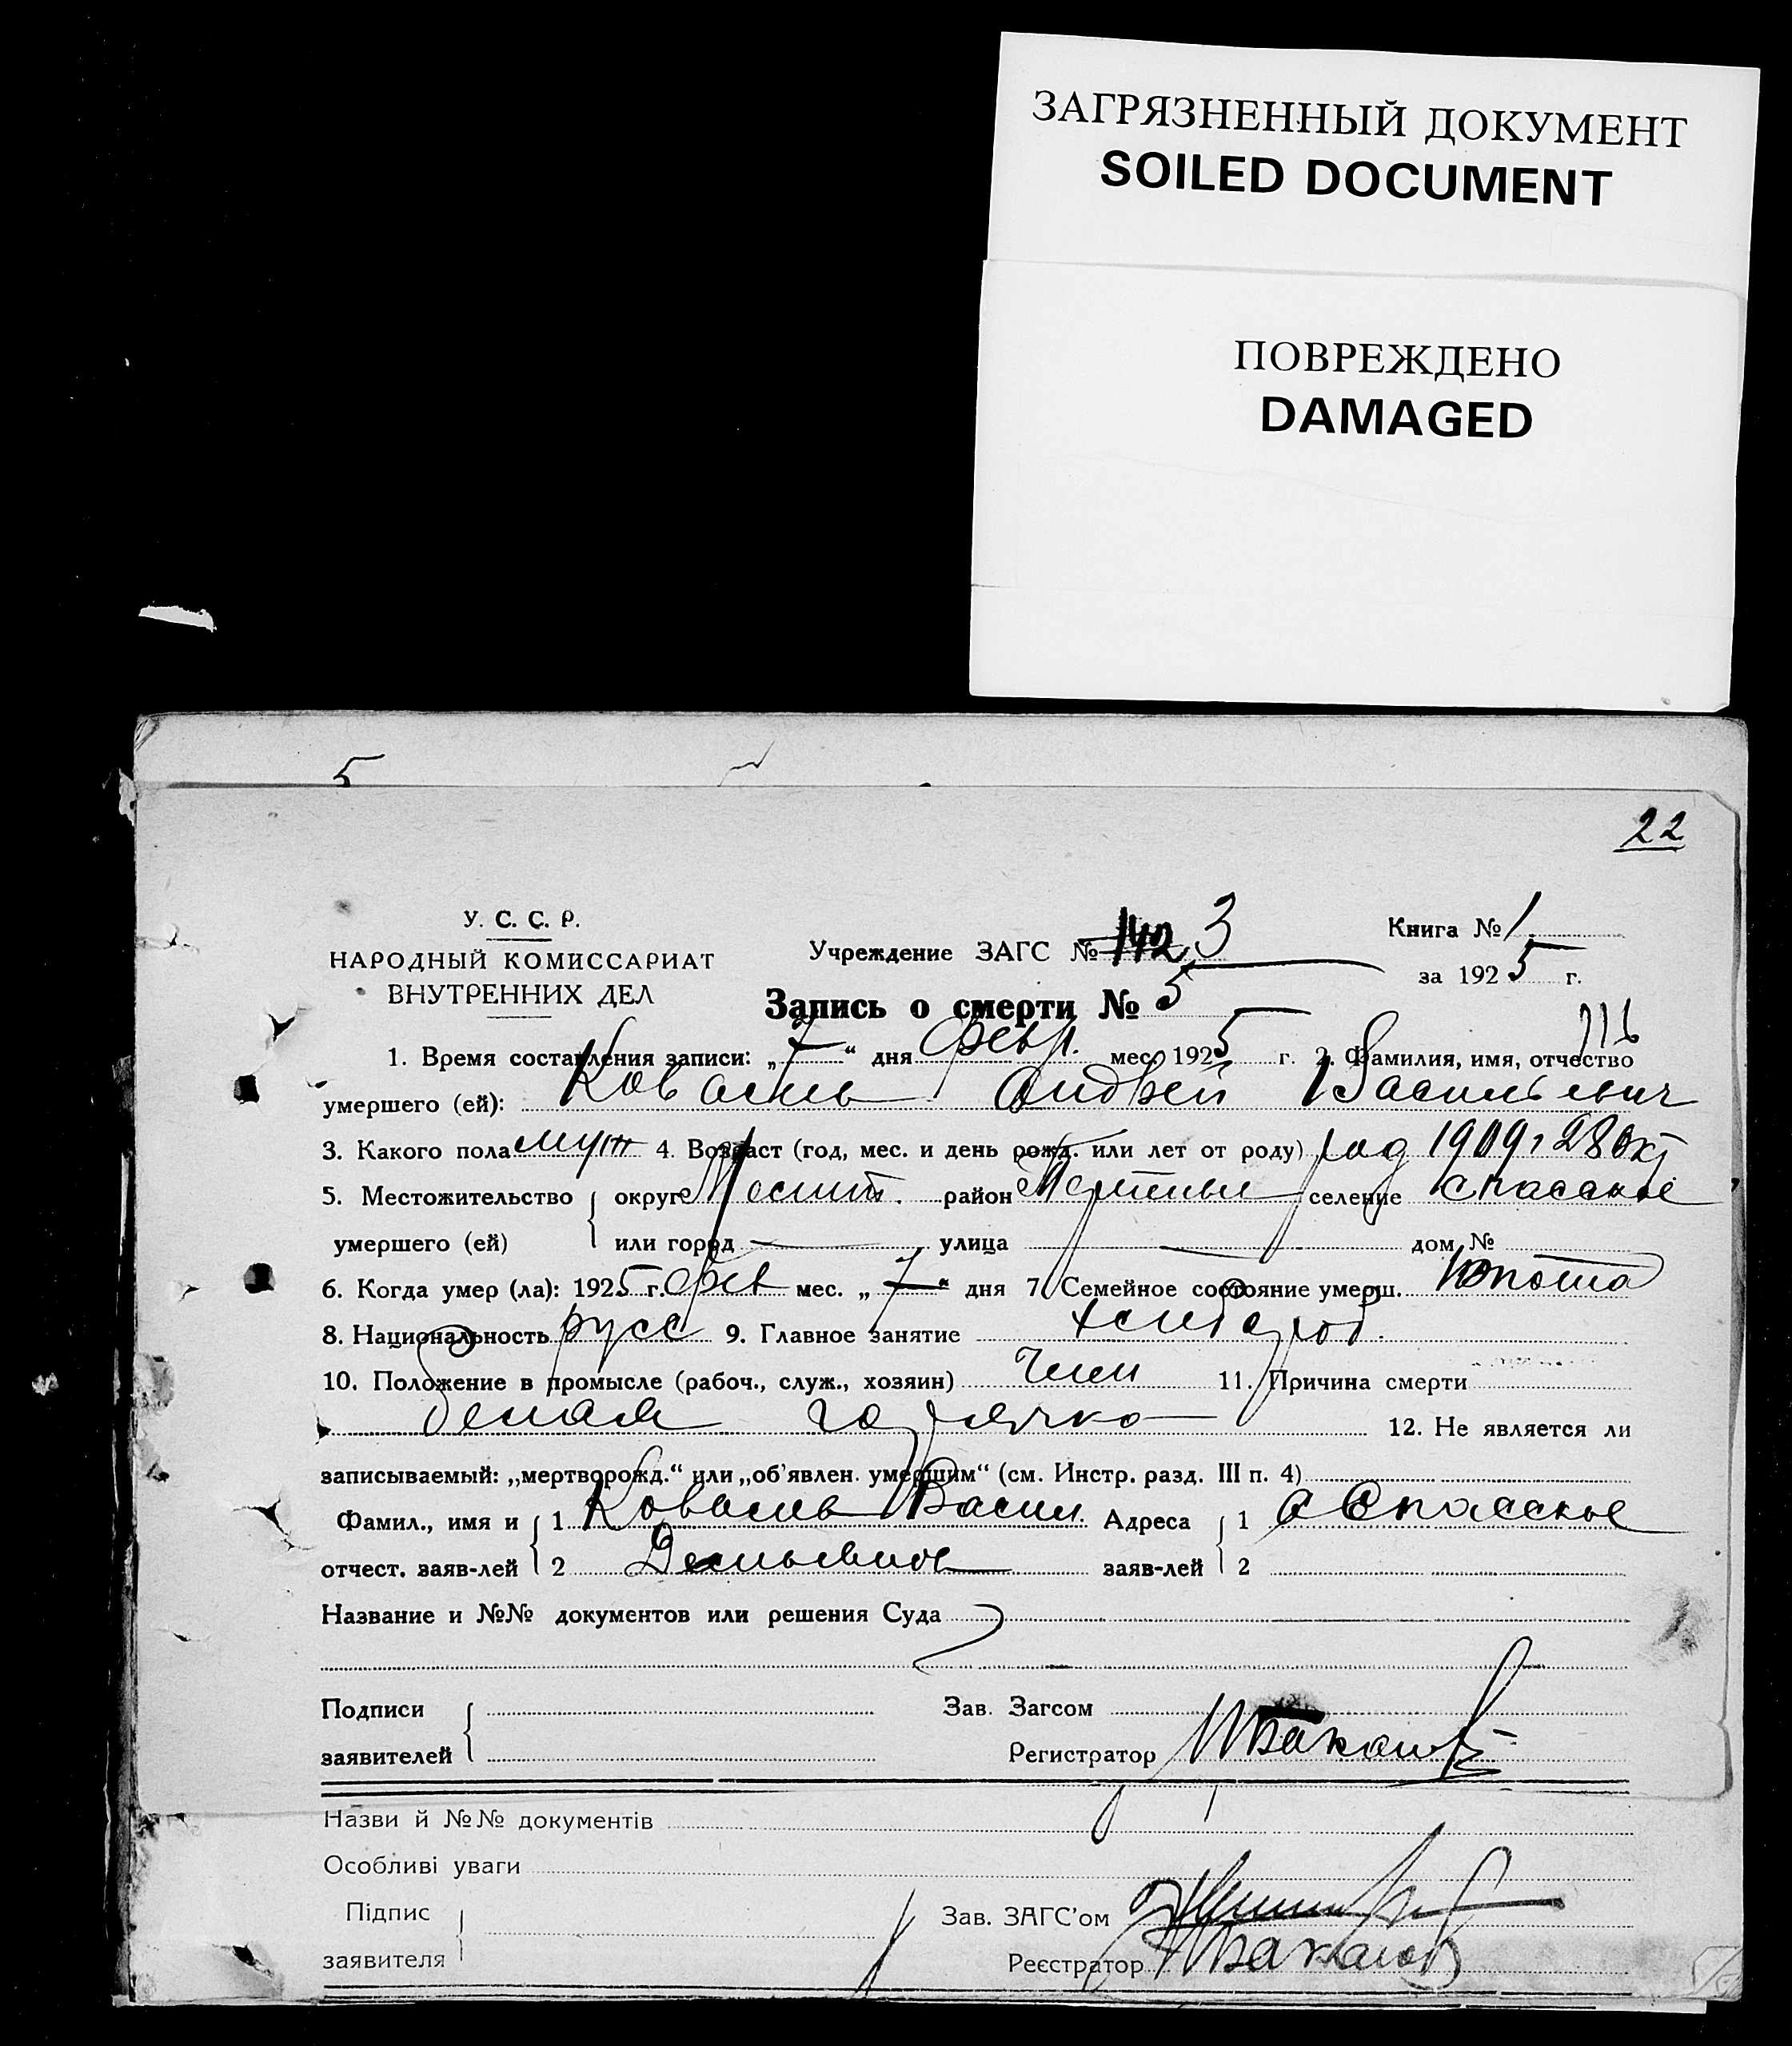 ЗАГРЯЗНЕННЫЙ ДОКУМЕНТ
SOILED DOCUMENT
ПОВРЕЖДЕНО
DAMAGED
5
22
У. С. С. Р.
НАРОДНЫЙ КОМИССАРИАТ
ВНУТРЕННИХ ДЕЛ
Учреждение ЗАГС № 142 3
Книга № 1
за 1925 г.
Запись о смерти № 5
116
1. Время составления записи: „7“ дня февр. мес. 1925 г. 2. Фамилия, имя, отчество
умершего (ей): Коваль Андрей Васильевич
3. Какого пола муж 4. Возраст (год, мес. и день рожд. или лет от роду) год 1909, 28 окт
5. Местожительство округ район селение Спасское
умершего (ей) или город — улица — дом №
6. Когда умер (ла): 1925 г. фев мес. „7“ дня 7. Семейное состояние умерш.
8. Национальность русс 9. Главное занятие хлебороб.
10. Положение в промысле (рабоч., служ., хозяин) член 11. Причина смерти
белая горячка 12. Не является ли
записываемый: „мертворожд.“ или „об'явлен. умершим“ (см. Инстр. разд. III п. 4)
Фамил., имя и 1 Коваль Васил. Адреса 1 с Спасское
отчест. заяв-лей 2 заяв-лей 2
Название и №№ документов или решения Суда
Подписи
заявителей
Зав. Загсом
Регистратор
Назви й №№ документів
Особливі уваги
Підпис
заявителя
Зав. ЗАГС'ом
Реєстратор